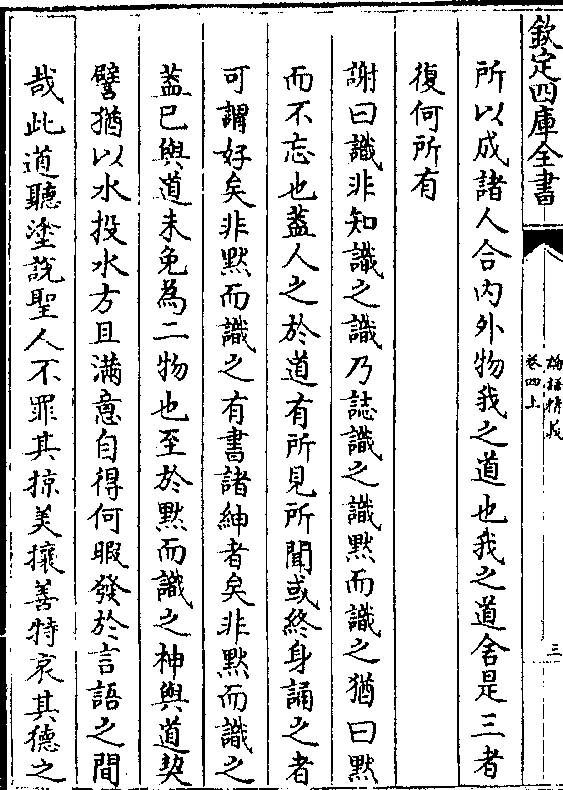 欽定四庫全書
論語精義
卷四上
三
所以成諸人合内外物我之道也我之道舍是三者
復何所有
謝曰識非知識之識乃誌識之識黙而識之猶曰黙
而不忘也葢人之於道有所見所聞或終身誦之者
可謂好矣非黙而識之有書諸紳者矣非黙而識之
葢已與道未免為二物也至於黙而識之神與道契
譬猶以水投水方且滿意自得何暇發於言語之間
哉此道聽塗說聖人不罪其掠美攘善特哀其德之